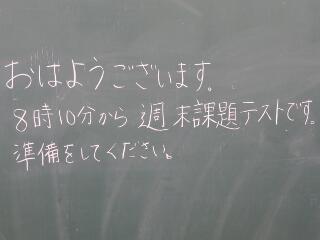 おはようございます。
8時10分から週末課題テストです。
準備をしてください。